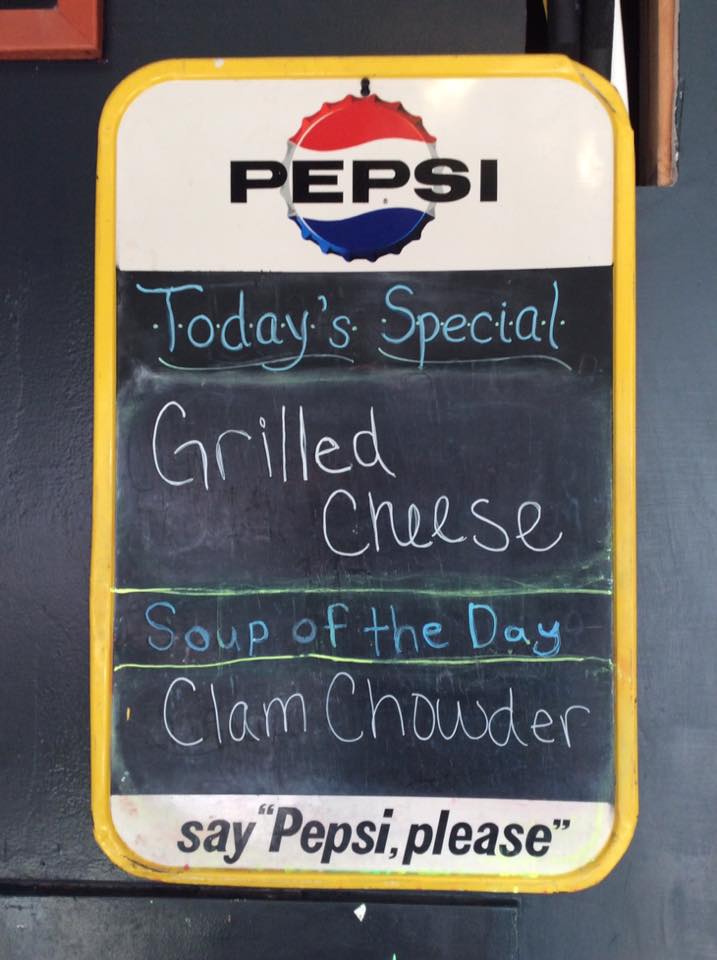 PEPSI
Today's Special
Grilled
Cheese
Soup of the Day
Clam Chowder
say "Pepsi, please"